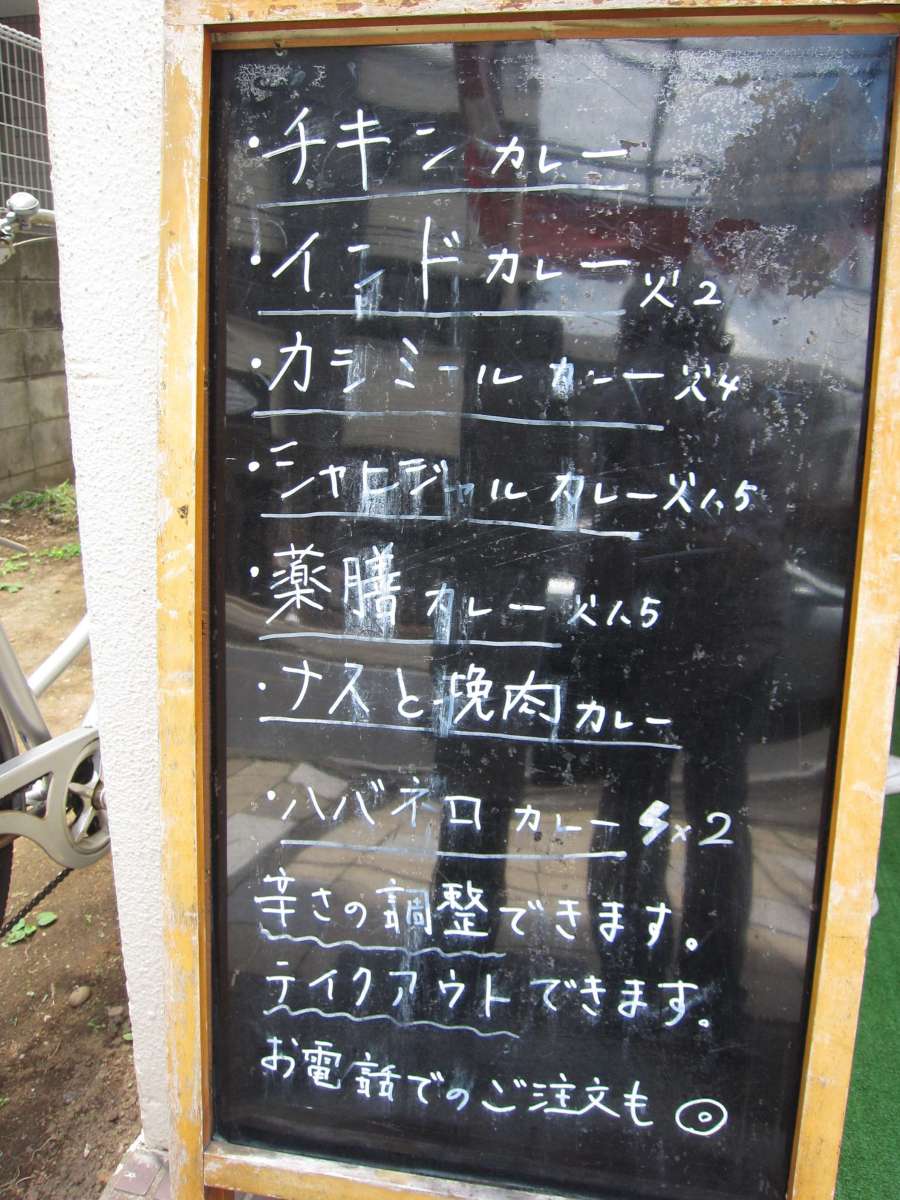 ・チキンカレー
・インドカレー 火2
・カシミールカレー 火4
・シャヒジャルカレー 火1.5
・薬膳カレー 火1.5
・ナスと挽肉カレー
・ハバネロカレー ×2
辛さの調整できます。
テイクアウトできます。
お電話でのご注文も◎